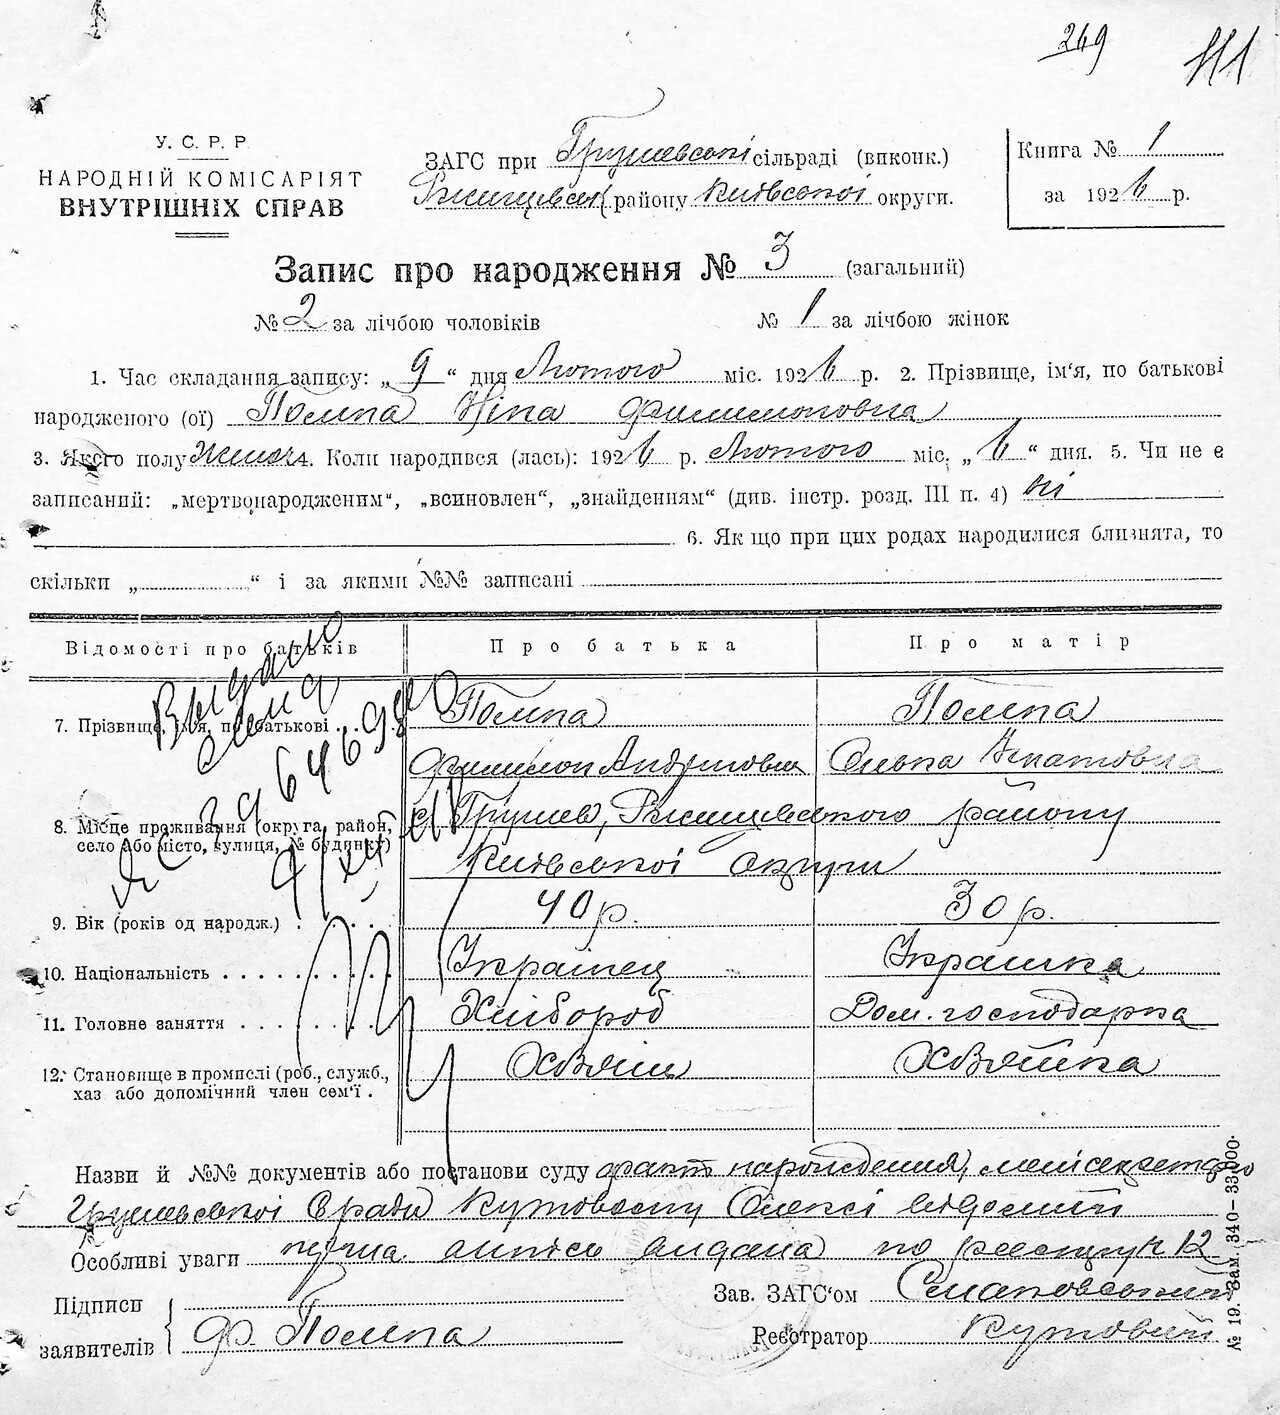 269
111
У. С. Р. Р.
НАРОДНІЙ КОМІСАРІЯТ
ВНУТРІШНІХ СПРАВ
ЗАГС при Грушевські сільраді (виконк.)
Ржищевськ району Київської округи.
Книга № 1
за 1926 р.
Запис про народження № 3 (загальний)
№ 2 за лічбою чоловіків № 1 за лічбою жінок
1. Час складання запису: „ 9 “ дня Лютого міс. 1926 р. 2. Прізвище, ім'я, по батькові
народженого (ої) Ніна Филимоновна
3. Якого полу Жіноч. Коли народився (лась): 1926 р. Лютого міс. „ 6 “ дня. 5. Чи не є
записаний: „мертвонародженим“, „всиновлен“, „знайденням“ (див. інстр. розд. III п. 4) ні
6. Як що при цих родах народилися близнята, то
скільки „ “ і за якими №№ записані
Відомості про батьків Про батька Про матір
Выдано
7. Прізвище, ім'я, по батькові
Филимон Андріович Ольга Игнатовна
8. Місце проживання (округа, район, село або місто, вулиця, № будинку) с. Грушев, Ржищевського району
Київської округи
9. Вік (років од народж.) 40 р. 30 р.
10. Національність Українец Українка
11. Головне заняття Хлібороб Дом. господарка
12. Становище в промислі (роб., служб., Хазяїн Хазяйка
хаз або допомічний член сем'ї
Назви й №№ документів або постанови суду факт нарождения,
Грушевської Сради Кутовому Олексі відомий
Особливі уваги випись видана по реєстру № 12
Підписи
заявителів Ф.
Зав. ЗАГС'ом
Реєстратор Кутовий
№ 19. Зам. 340—33.000.